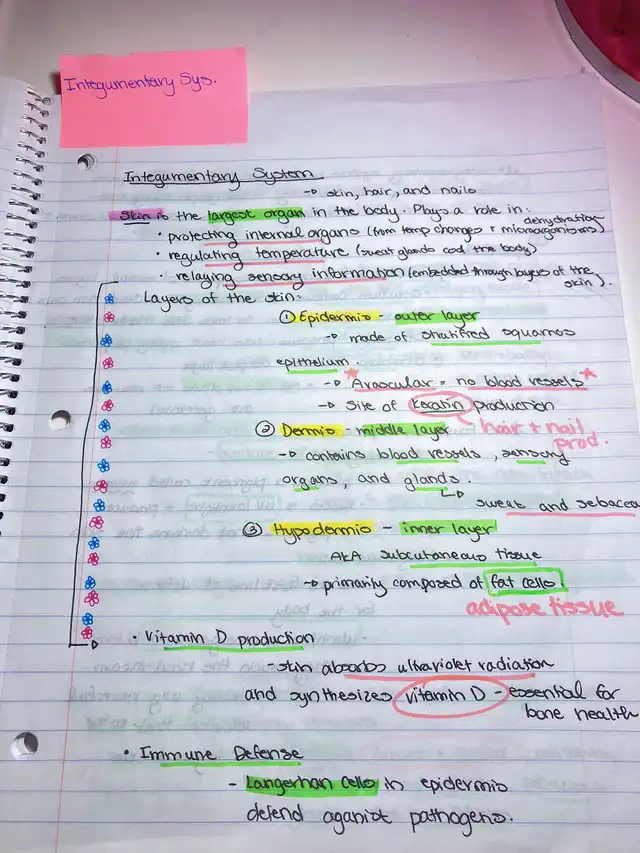 Integumentary Sys.
Integumentary System
→ skin, hair, and nails
Skin is the largest organ in the body. Plays a role in:
• protecting internal organs (from temp changes + microorganisms)
dehydration
• regulating temperature (sweat glands cool the body)
• relaying sensory information (embedded through layers of the
skin).
Layers of the skin:
① Epidermis - outer layer
→ made of stratified squamos
epithelium.
→ Avascular = no blood vessels
→ Site of keratin production
hair + nail
prod.
② Dermis - middle layer
→ contains blood vessels, sensory
organs, and glands.
↳ sweat and sebaceo
③ Hypodermis - inner layer
AKA subcutaneous tissue
→ primarily composed of fat cells.
adipose tissue
• Vitamin D production
- skin absorbs ultraviolet radiation
and synthesizes vitamin D - essential for
bone health
• Immune Defense
- Langerhan cells in epidermis
defend aganist pathogens.